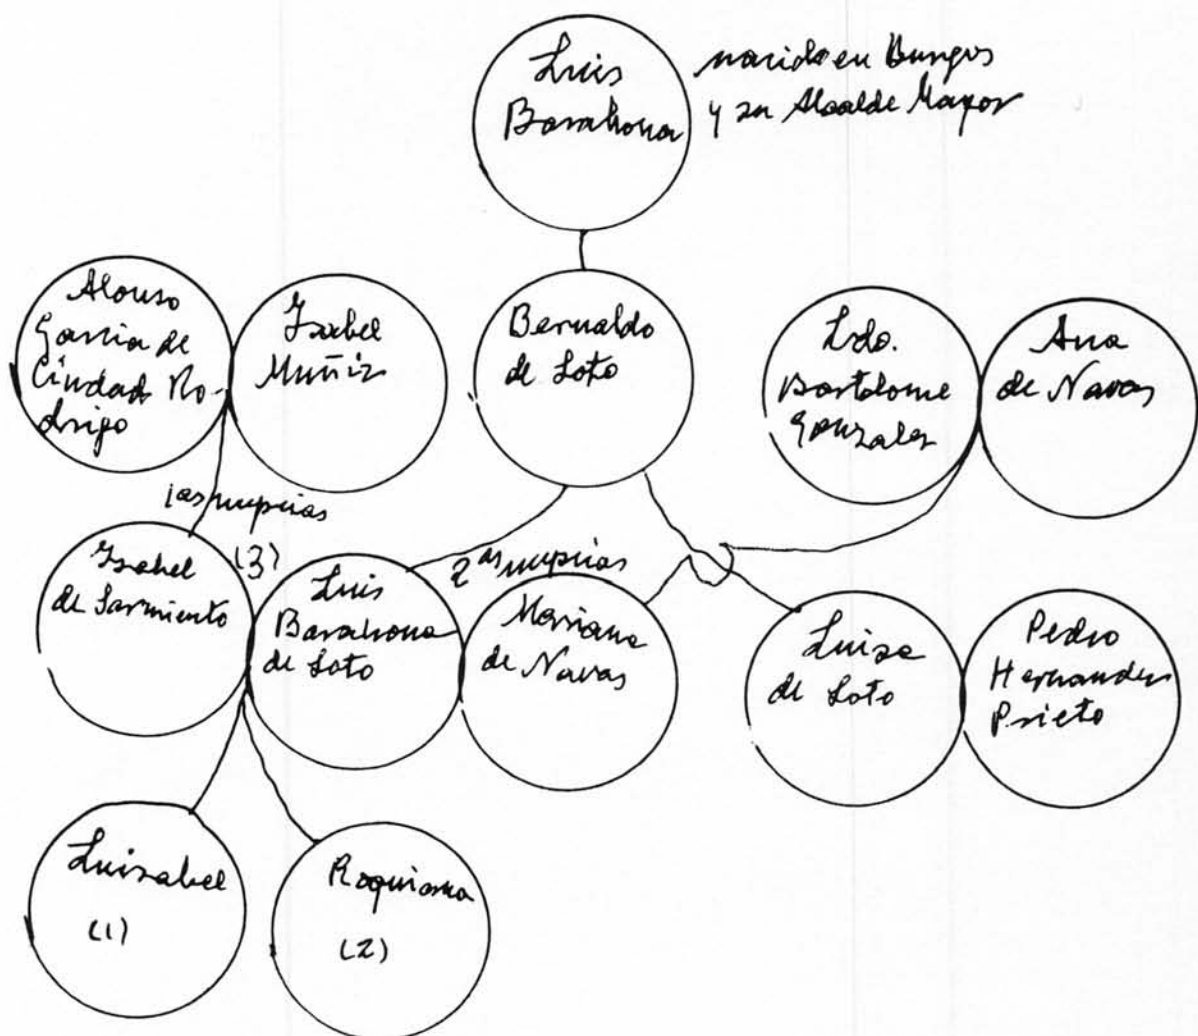 Luis
Barahona
nacido en Burgos
y su Alcalde Mayor
Alonso
Garcia de
Ciudad Ro-
drigo
Isabel
Muñiz
Bernaldo
de Soto
Lcdo.
Bartolome
Gonzalez
Ana
de Navas
1as nupcias
(3)
2as nupcias
Isabel
de Sarmiento
Luis
Barahona
de Soto
Mariana
de Navas
Luisa
de Soto
Pedro
Hernandez
Prieto
Luisabel
(1)
(2)